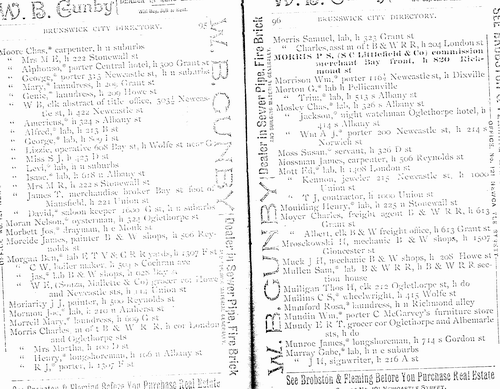 W. B. Gunby
BRUNSWICK CITY DIRECTORY. 95
Moore Chas,* carpenter, h n suburbs
" Mrs M E, h 222 Stonewall st
" Alphonso,* porter Central hotel, h 500 Grant st
" George,* porter 315 Newcastle, h n suburbs
" Mary,* laundress, h 205 Grant st
" Genie,* laundress, h 209 Howe st
" W B, clk abstract of title office, Newcastle st, h 422 Newcastle st
" Americus,* h 324 Albany st
" Alfred,* lab, h 315 B st
" George,* lab, h 809 I st
" Lizzie, operative 608 Bay st, h Wolfe st near G
" Miss S J, h 423 D st
" Levi,* lab, h n suburbs
" Isaac,* lab, h 618 Albany st
" Mrs M R, h 222 s Stonewall st
" James T, merchandise broker Bay st foot of
Mansfield, h 221 Union st
" David,* saloon keeper 1600 G st, h n suburbs
Moran Nelson,* oysterman, h 325 Oglethorpe st
Morbert Jos,* drayman, h e Monk st
Moreide James, painter B & W shops, h 506 Reynolds st
Morgan Ben,* lab E T V & G R R yards, h 1307 F st
" C W, boiler maker, h 503 s Cochran ave
" Jas,* lab B & W shops, h 628 Bay st
" W E, (Souza, Mallette & Co) grocer cor Howe
and Newcastle sts, h 112 Union st
Moriarity J J, printer, h 500 Reynolds st
Mornan Jos,* lab, h 210 n Amherst st
Morreil Mary,* laundress, h 509 G st
Morris Charles, m of t B & W R R, h cor London
and Oglethorpe sts
" Mrs Martha, h 1307 F st
" Henry,* longshoreman, h 106 n Albany st
" R J,* porter, h 1307 F st
See Brobston & Fleming Before You Purchase Real Estate
W. B. GUNBY
Dealer in Sewer Pipe, Fire Brick
W. B. Gunby
96 BRUNSWICK CITY DIRECTORY.
Morris Samuel, lab, h 323 Grant st
" Charles, asst m of t B & W R R, h 204 London st
MORRIS P S, (S C Littlefield & Co) commission
merchant Bay front, h 820 Richmond st
Morrison Wm,* porter 116½ Newcastle st, h Dixville
Morton G,* lab, h Pellicanville
" Trim,* lab, h 513 s Albany st
Mosley Chas,* lab, h 326 s Albany st
" Jackson,* night watchman Oglethorpe hotel, h
414 s Albany st
" Wm A J,* porter 200 Newcastle st, h 214 s
Norwich st
Moss Susan,* servant, h 326 D st
Mossman James, carpenter, h 506 Reynolds st
Mott Ed,* lab, h 1408 London st
" Kennon, jeweler 215 Newcastle st, h 1000
Union st
" J, contractor, h 1000 Union st
Moulding Henry,* lab, h 225 n Stonewall st
Moyer Charles, freight agent B & W R R, h 613
Grant st
" Albert, clk B & W freight office, h 613 Grant st
Mrosekowski H, mechanic B & W shops, h 1507
Gloucester st
Muck J H, mechanic B & W shops, h 208 Howe st
Mullen Sam,* lab B & W R R, h B & W R R section house
Mulligan Thos H, clk 212 Oglethorpe st, h do
Mullins C S,* wheelwright, h 413 Wolfe st
Munford Rosa,* laundress, h n Richmond alley
Muntin Wm,* porter C McGarvey's furniture store
Mundy E R T, grocer cor Oglethorpe and Albemarle
sts, h do
Munroe James,* longshoreman, h 714 s Gordon st
Murray Gabe,* lab, h n e suburbs
" J H, signwriter, h 216 A st
See Brobston & Fleming Before You Purchase Real Estate
W. B. GUNBY
Dealer in Sewer Pipe, Fire Brick